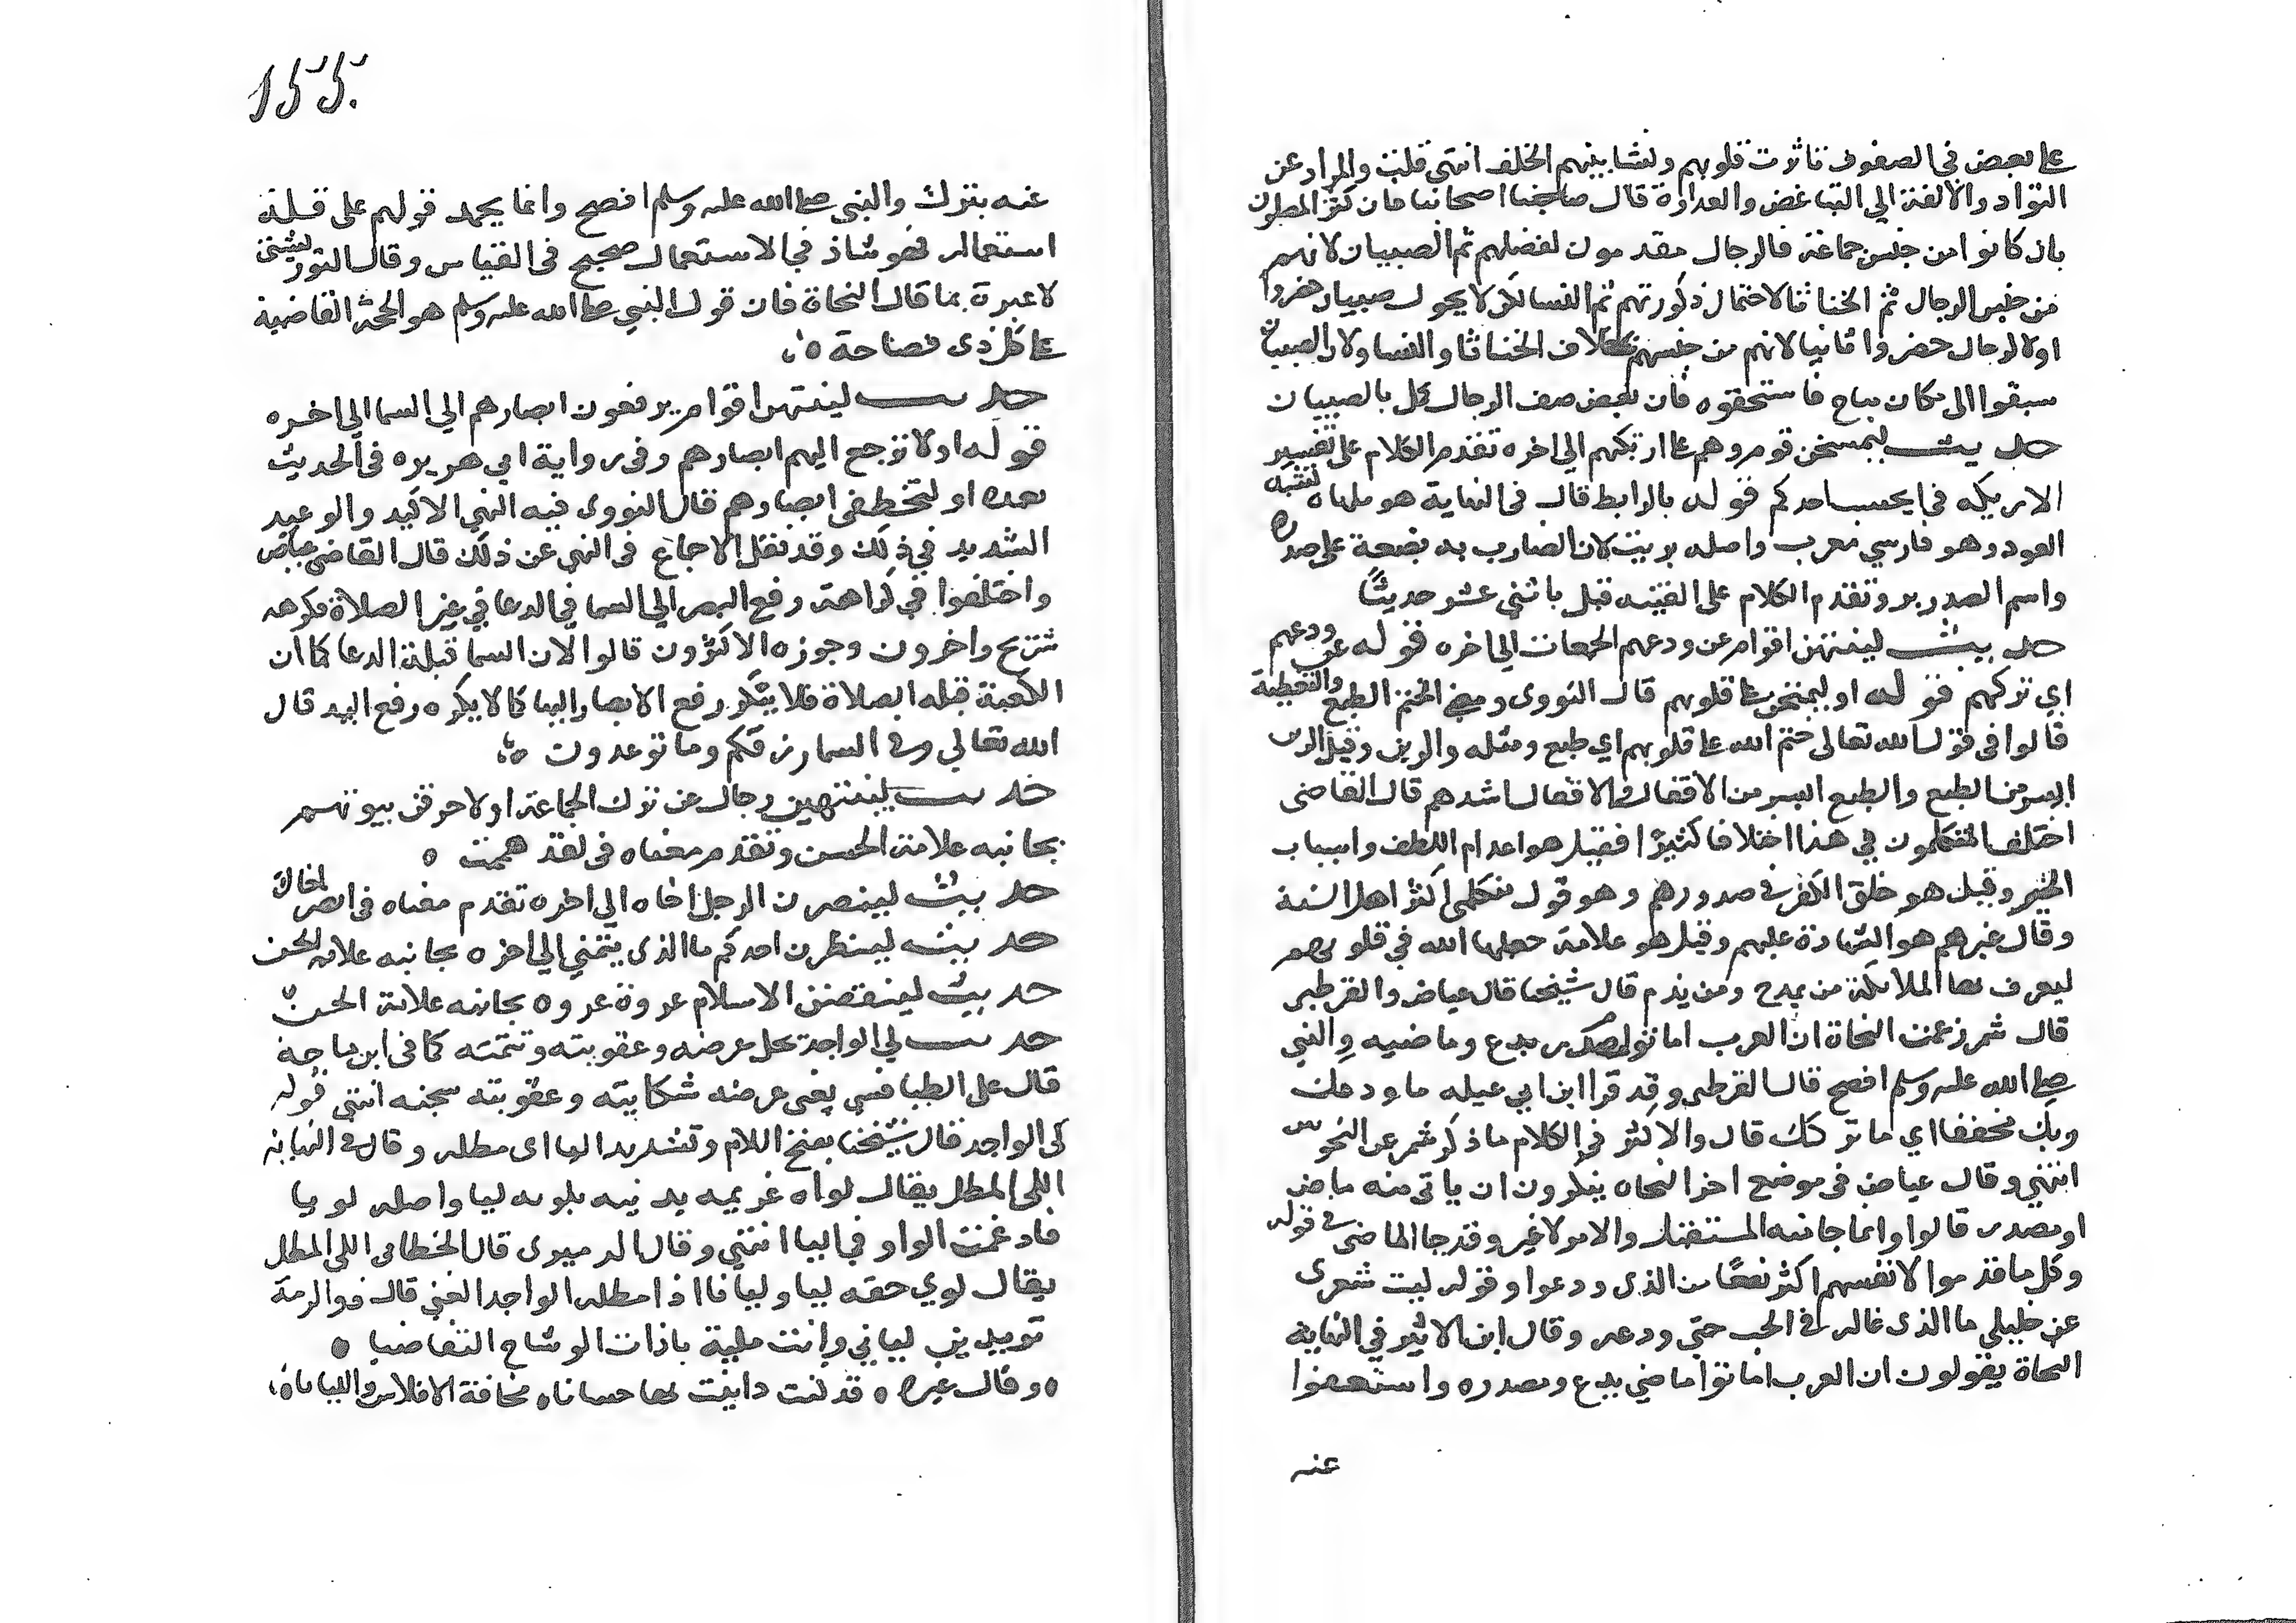 على بعض في الصفوف تاثرت قلوبهم ونشا بينهم الخلف انتهى قلت والمراد عن
التواد والالفة الي التباغض والعداوة قال اصحابنا فان كثر المصلون
بان كانوا من جنس جماعة فالرجال مقدمون لفضلهم ثم الصبيان لانهم
من جنس الرجال ثم الخناثا لاحتمال ذكورتهم ثم النسا لكن لا يحول صبيان حضروا
اولا لرجال حضروا ثانيا لانهم من جنسهم بخلاف الخناثا والنسا ولان الصبيان
سبقوا الى مكان مباح فاستحقوه فان نقص صف الرجال كمل بالصبيان
حديث ليمسخن قوم وهم على اريكتهم الي اخره تقدم الكلام على تفسير
الاريكه في ايحسب احدكم قوله بالرابط قال في النهاية هو ملهاه تشبه
العود وهو فارسي معرب واصله بربت لان الضارب به يضعه على صدره
واسم الصدر بر وتقدم الكلام على القينه قبل باثني عشر حديثًا
حديث لينتهن اقوام عن ودعهم الجمعات الي اخره قوله عن ودعهم
اي تركهم قوله او ليختمن على قلوبهم قال النووى ومعنى الختم الطبع والتغطية
قالوا في قول الله تعالى ختم الله على قلوبهم اي طبع ومثله والرين وقيل الرين
ايسر من الطبع والطبع ايسر من الاقفال والاقفال اشدهم قال القاضى
اختلف المتكلمون في هذا اختلافا كثيرًا فقيل هو اعدام اللطف واسباب
الخير وقيل هو خلق الكفر في صدورهم وهو قول متكلمي اكثر اهل السنة
وقال غيرهم هو الشهادة عليهم وقيل هو علامة جعلها الله في قلوبهم
ليعرف بها الملائكة من يمدح ومن يذم قال شيخنا قال عياض والقرطبى
قال شمر زعمت النحاة ان العرب اماتوا مصدر يدع وماضيه والنبي
صلى الله عليه وسلم افصح قال القرطبى وقد قرا ابن ابي عبله ما ودعك
ربك مخففا اي ما تركك قال والاكثر في الكلام ما ذكر شمر عن النحويين
انتهي وقال عياض في موضع اخر النحاه ينكرون ان ياتى منه ماض
او مصدر قالوا وانما جا منه المستقبل والامر لا غير وقد جا الماضى في قوله
وكل ما قدموا لانفسهم اكثر نفعًا من الذى ودعوا وقوله ليت شعرى
عن خليلي ما الذى غاله في الحب حتي ودعه وقال ابن الاثير في النهاية
النحاة يقولون ان العرب اماتوا ماضي يدع ومصدره واستغنوا
عنه
155.
عنه بترك والنبي صلى الله عليه وسلم افصح وانما يحمل قولهم على قلة
استعماله فهو شاذ في الاستعمال صحيح فى القياس وقال التوربشتي
لا عبرة بما قال النحاة فان قول النبي صلى الله عليه وسلم هو الحجة القاضية
على كل ذى فصاحة ه
حديث لينتهن اقوام يرفعون ابصارهم الي السما الي اخره
قوله او لا ترجع اليهم ابصارهم وفى رواية ابي هريره فى الحديث
بعده او لتخطفن ابصارهم قال النووى فيه النهي الاكيد والوعيد
الشديد في ذلك وقد نقل الاجماع فى النهي عن ذلك قال القاضى عياض
واختلفوا في كراهة رفع البصر الي السما في الدعا في غير الصلاة فكرهه
شريح واخرون وجوزه الاكثرون قالوا لان السما قبلة الدعا كما ان
الكعبة قبله الصلاة فلا ينكر رفع الابصار اليها كما لا يكره رفع اليد قال
الله تعالي وفي السما رزقكم وما توعدون ه
حديث لينتهين رجال عن ترك الجماعة او لاحرقن بيوتهم
بجانبه علامة الحسن وتقدم معناه فى لقد هممت ه
حديث لينصرن الرجل اخاه الى اخره تقدم معناه فى انصر اخاك
حديث لينظرن احدكم ما الذى يتمني الي اخره بجانبه علامة الحسن
حديث لينقضن الاسلام عروة عروه بجانبه علامة الحسن
حديث لي الواجد يحل عرضه وعقوبته وتتمته كما فى ابن ماجة
قال على الطنافسي يعنى عرضه شكايته وعقوبته سجنه انتهى قوله
لى الواجد قال شيخنا بفتح اللام وتشديد اليا اى مطله وقال في النهاية
اللي المطل يقال لواه غريمه بدينه يلويه ليا واصله لويا
فادغمت الواو في اليا انتهي وقال الدميرى قال الخطابى اللي المطل
يقال لوي حقه ليا وليانا اذا مطله الواجد الغني قال ذو الرمة
تريدين لياني وانت مليه ياذات الوشاح التقاضيا ه
ه وقال غيره ه قد كنت داينت بها حسانا ه مخافة الافلاس والليانا ه